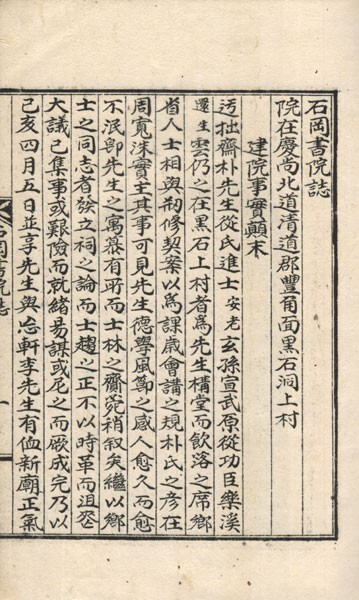 石岡書院誌
院在慶尚北道清道郡豐角面黑石洞上村
建院事實顛末
迃拙齋朴先生從氏進士安老玄孫宣武原從功臣樂溪
還生雲仍之在黑石上村者爲先生構堂而飮落之席鄉
省人士相與刱修契案以爲課歲會講之規朴氏之彦在
周寛洙實主其事可見先生德學風節之感人愈久而愈
不泯卽先生之寓慕有所而士林之齋菀稍叙矣繼以鄉
士之同志者發立祠之論而士趨之正不以時革而沮焂
大議已集事或艱險而就緖易謀或尼之而厥成完乃以
己亥四月五日並享先生與忘軒李先生有侐新廟正氣
石岡書院誌
一